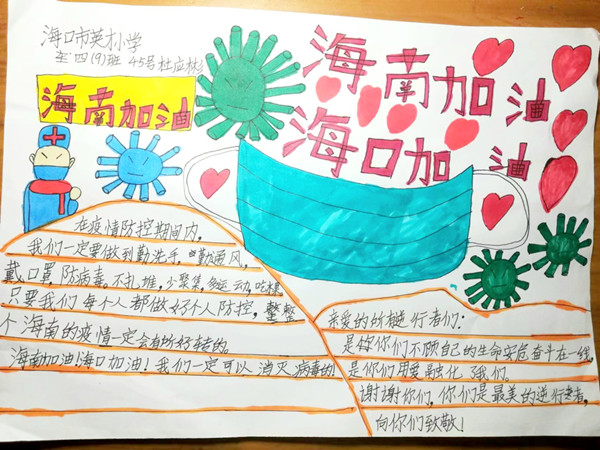 海口市英才小学
四(9)班 45号杜应彬
海南加油
海口加油
海南加油
在疫情防控期间内,
我们一定要做到勤洗手,勤通风,
戴口罩,防病毒。不扎堆,少聚集,多运动,吃
只要我们每个人都做好个人防控,整
个海南的疫情一定会有所好转的。
海南加油!海口加油!我们一定可以消灭病毒的!
亲爱的 逆行者们:
是你们不顾自己的生命安危奋斗在一线,
是你们用爱融化了我们。
谢谢你们,你们是最美的逆行者,
向你们致敬!